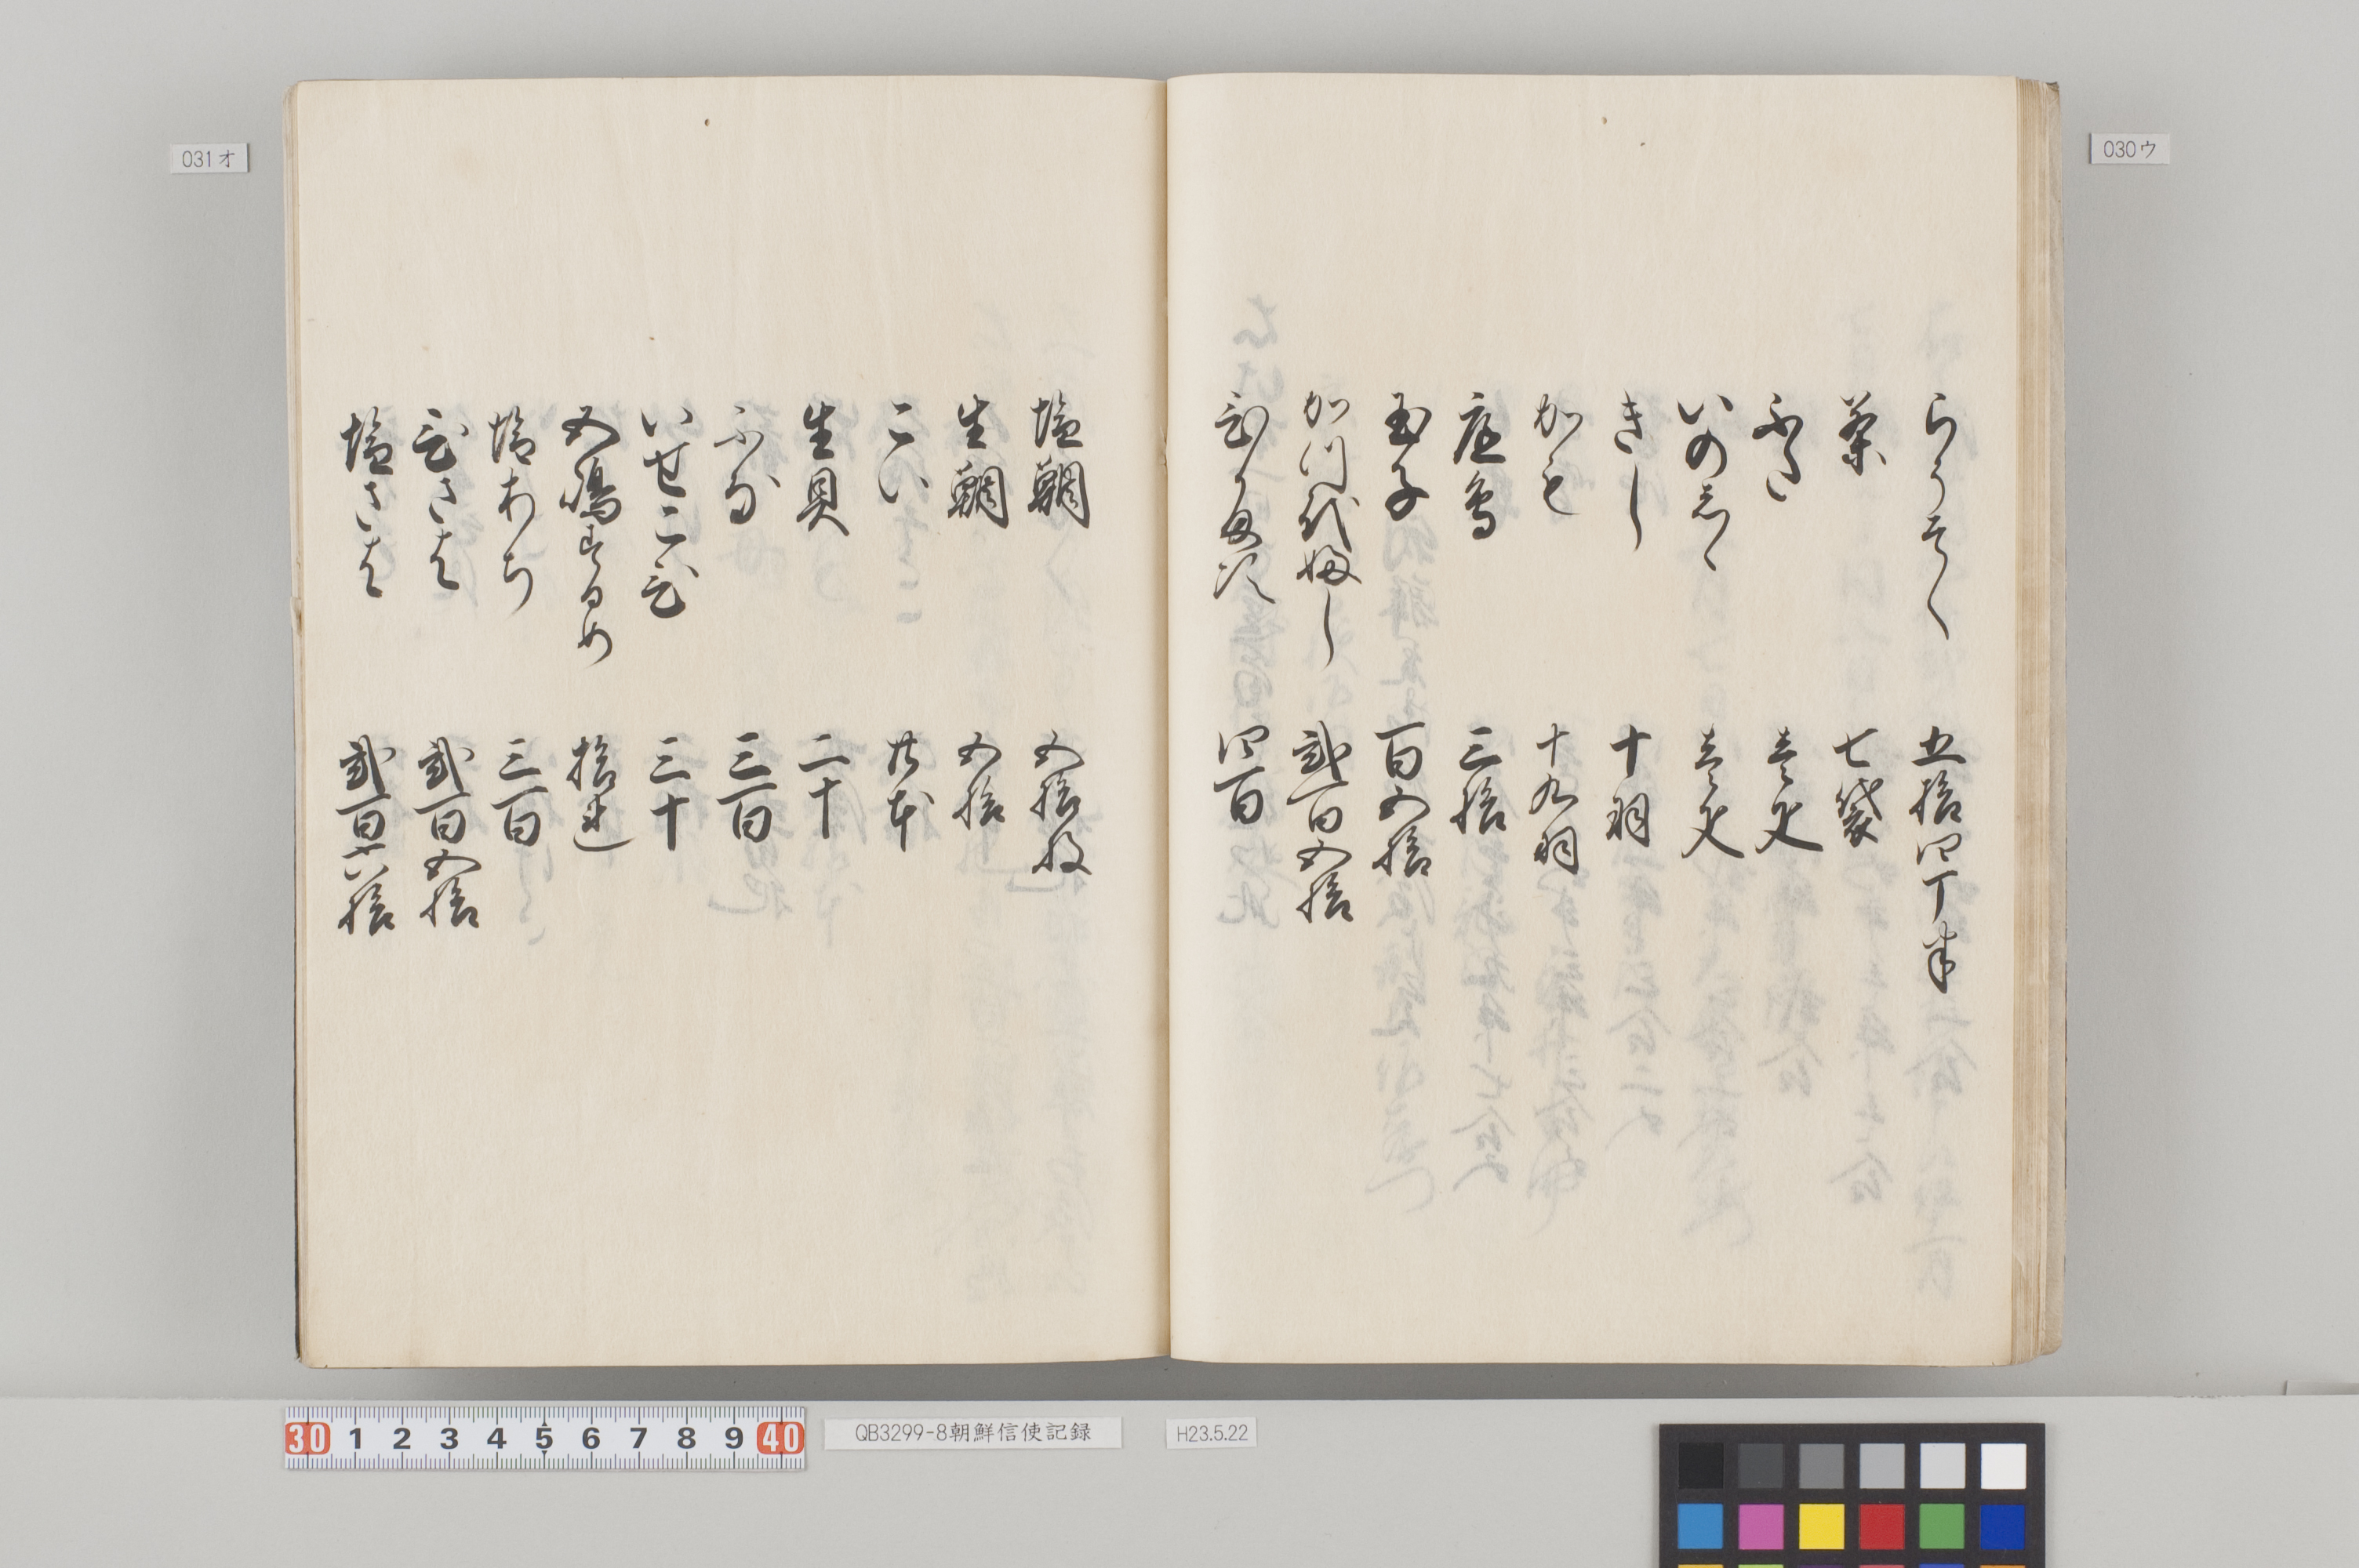 030ウ
らうそく 五拾四丁半
茶 七袋
ふた 壱疋
いのしゝ 壱疋
きし 十羽
かも 十九羽
庭鳥 三拾
玉子 百五拾
かつほふし 弐百五拾
四百
031オ
塩鯛 五拾枚
生鯛 五拾
こい 廿本
生貝 二十
ふな 三百
いせこひ 三十
五嶋するめ 拾連
塩あち 三百
ひさは 弐百五拾
塩さは 弐百六拾
30 1 2 3 4 5 6 7 8 9 40
QB3299-8朝鮮信使記録
H23.5.22